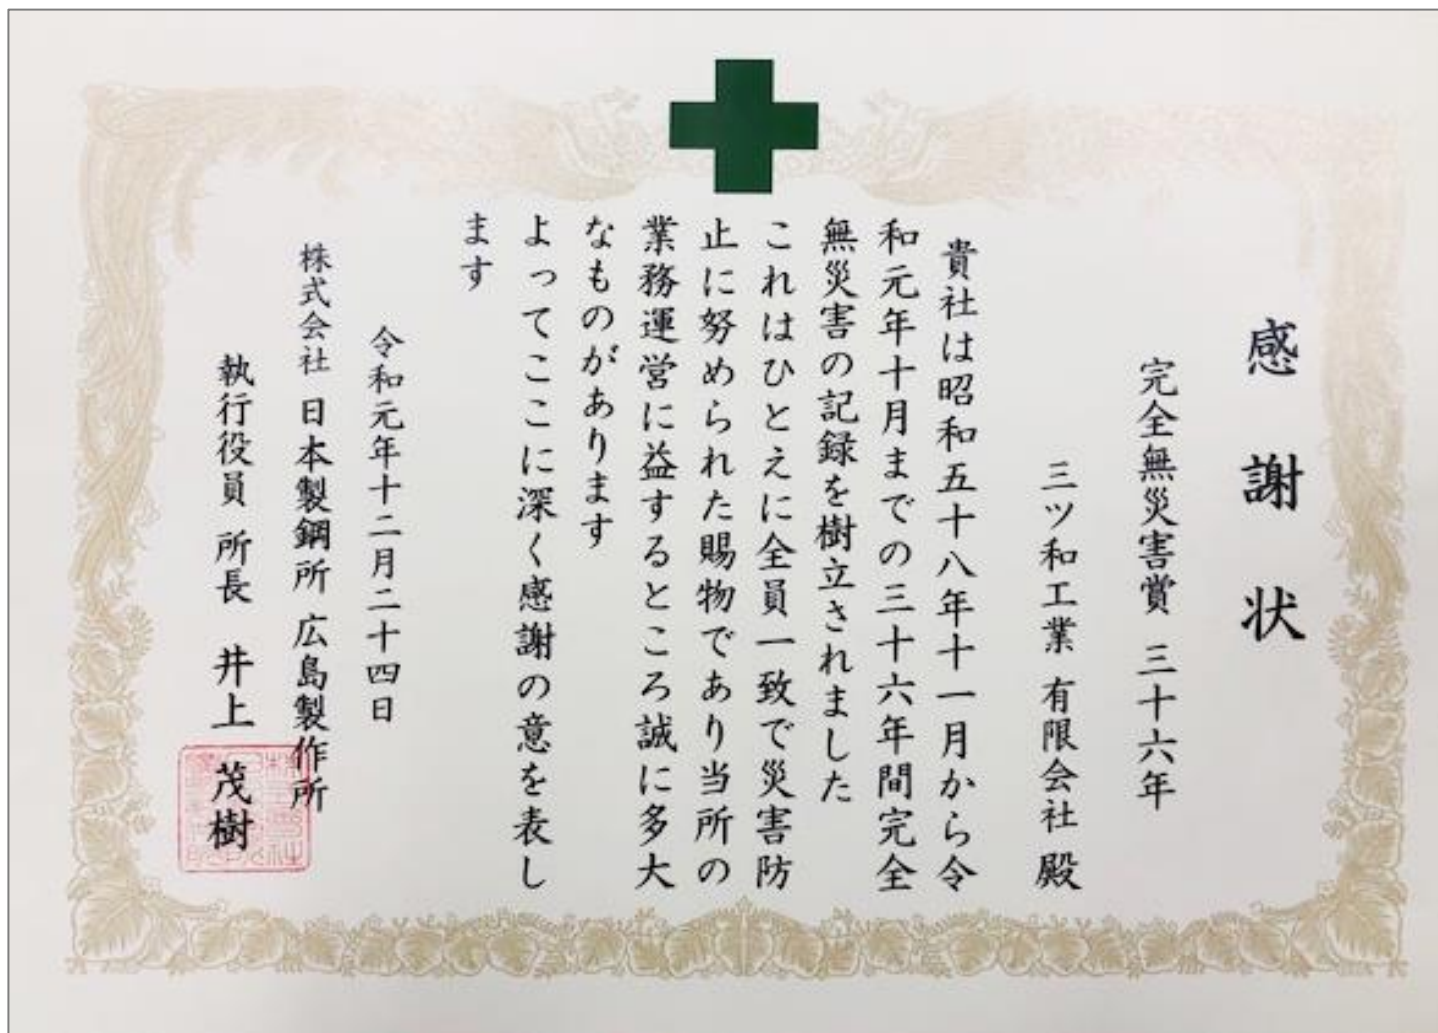 感謝状
完全無災害賞 三十六年
三ツ和工業 有限会社 殿
貴社は昭和五十八年十一月から令
和元年十月までの三十六年間完全
無災害の記録を樹立されました
これはひとえに全員一致で災害防
止に努められた賜物であり当所の
業務運営に益するところ誠に多大
なものがあります
よってここに深く感謝の意を表し
ます
令和元年十二月二十四日
株式会社 日本製鋼所 広島製作所
執行役員 所長 井上 茂樹